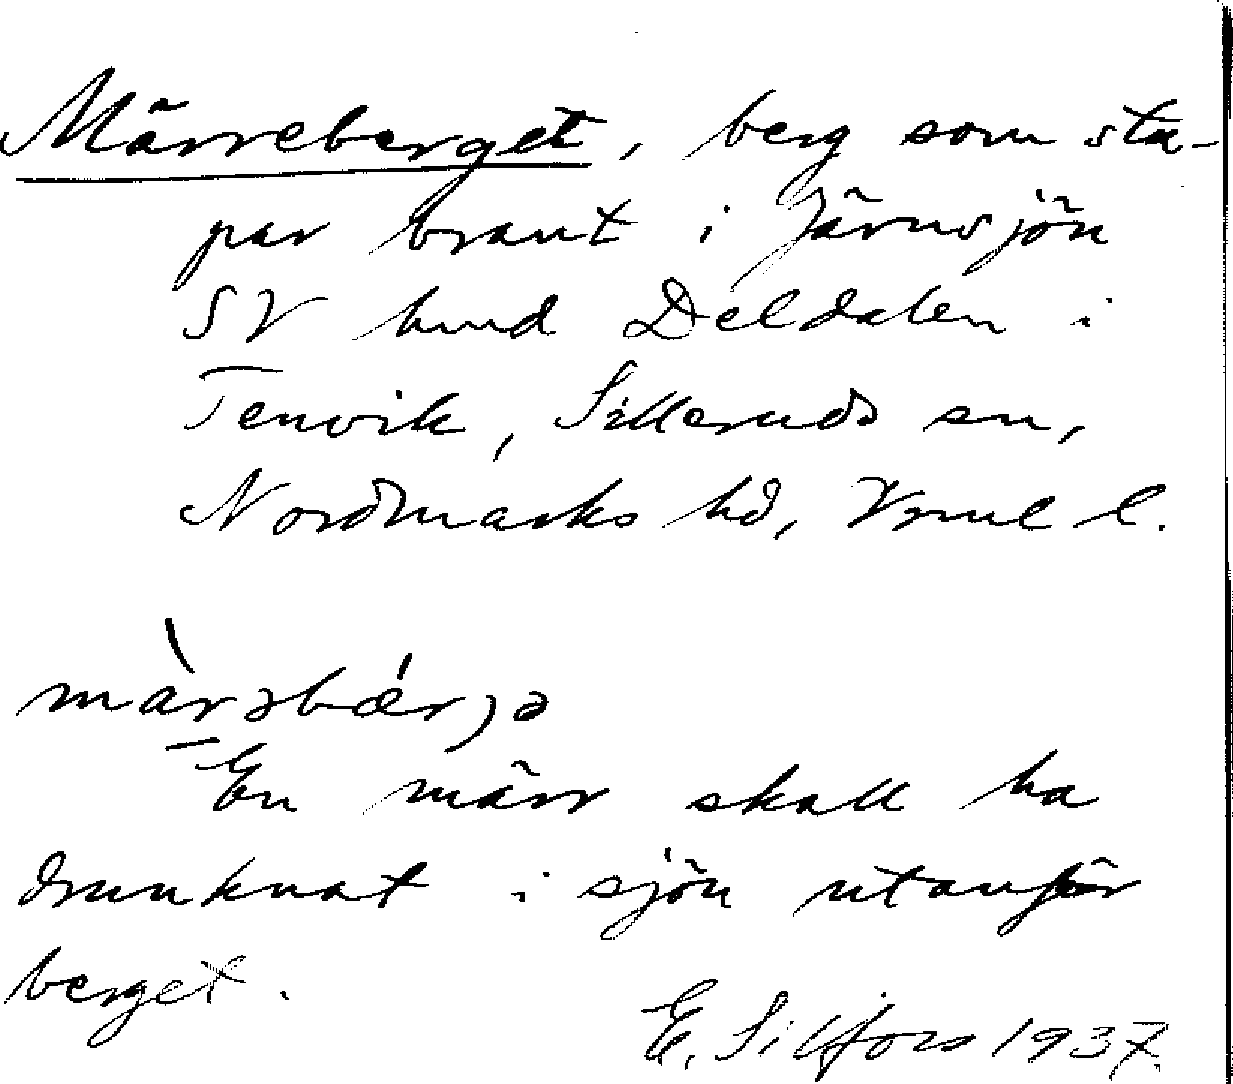 Märreberget, berg som stu-
par brant i Järnsjön
SV hmd Deldalen i
Tenvik, Silleruds sn,
Nordmarks hd, Vrml l.
màrəbǽrjə
En märr skall ha
drunknat i sjön utanför
berget.
E. Silfors 1937.